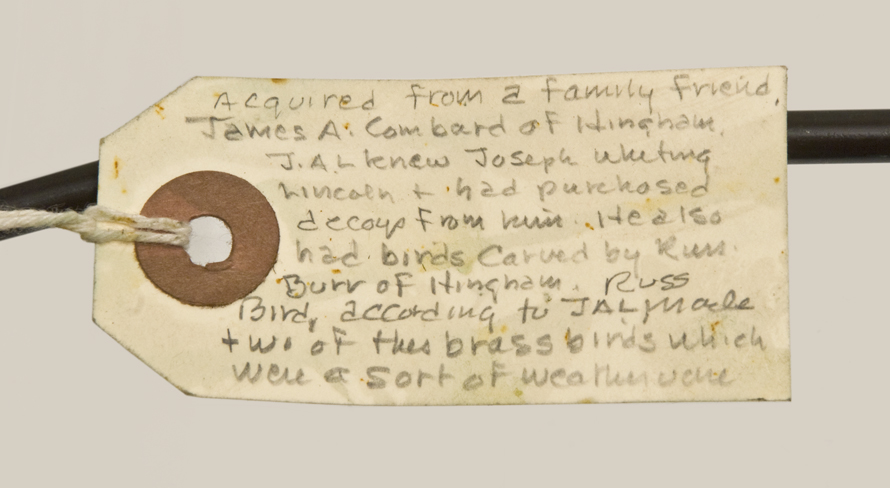 Acquired from a family friend,
James A. Lombard of Hingham.
J.A.L knew Joseph Whiting
Lincoln + had purchased
decoys from him. He also
had birds carved by Russ.
Burr of Hingham. Russ
Bird, according to JAL, made
two of thes brass birds which
were a sort of weathervane